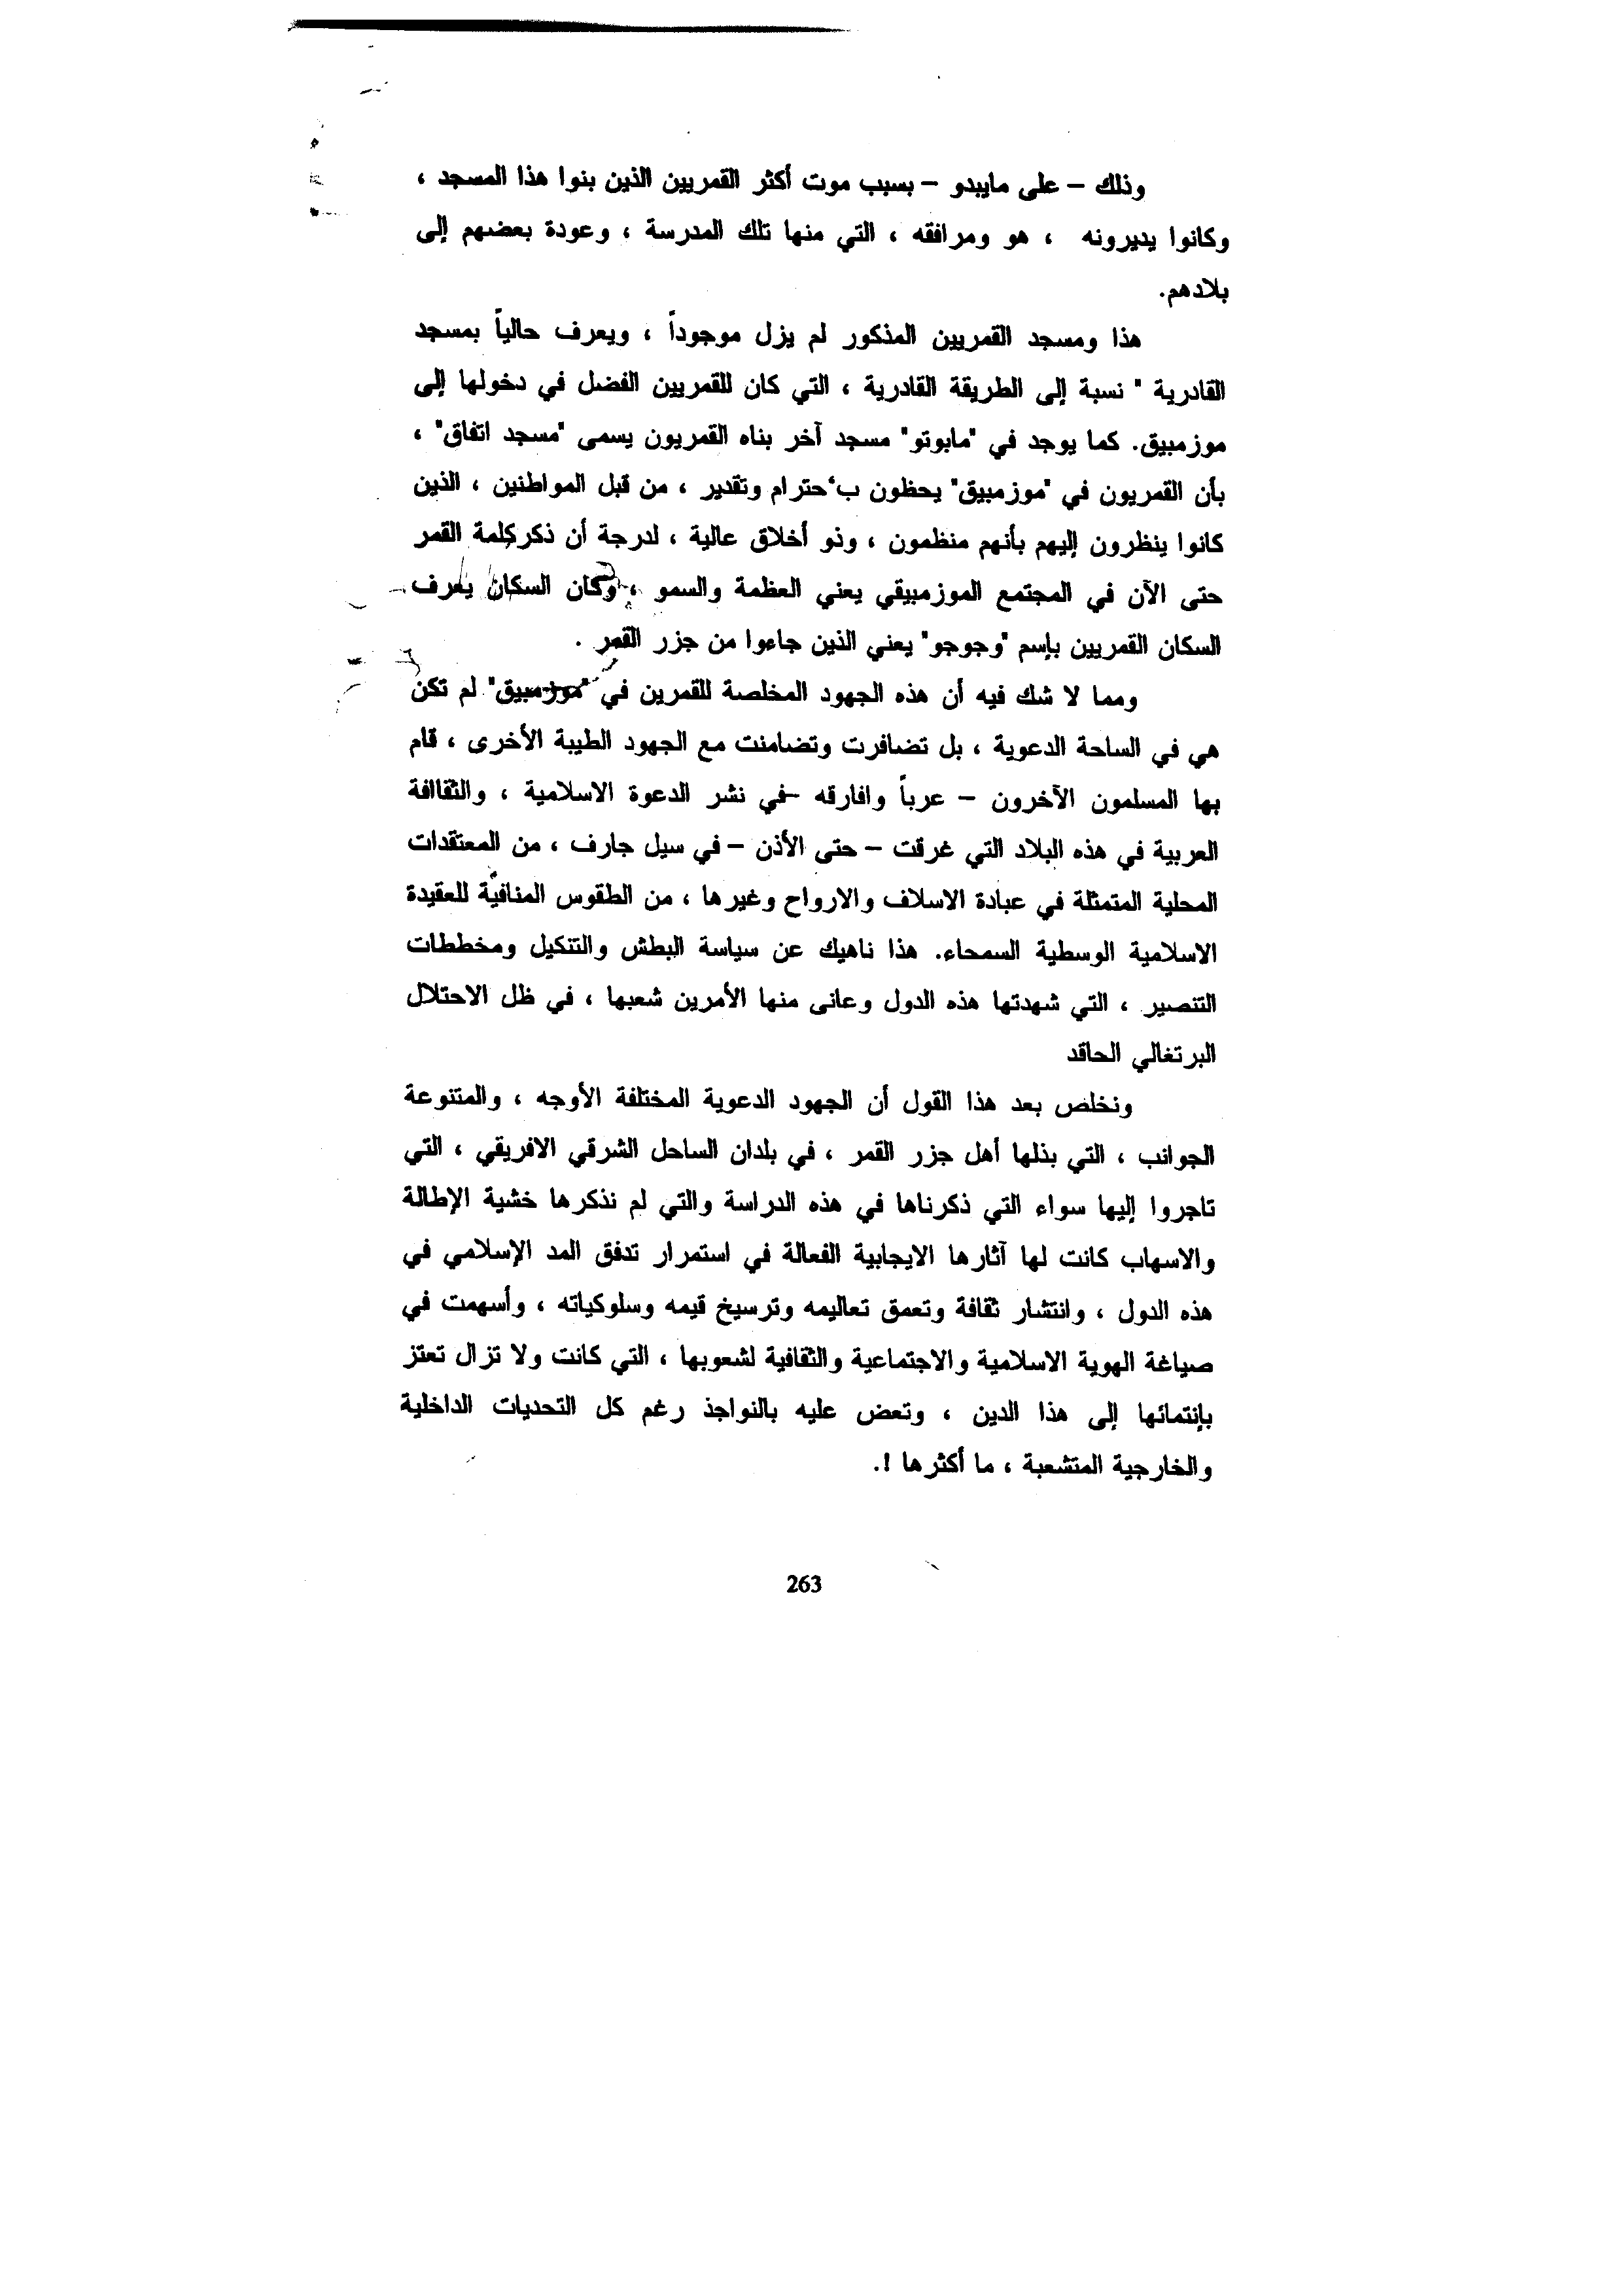 وذلك – على مايبدو – بسبب موت أكثر القمريين الذين بنوا هذا المسجد ،
وكانوا يديرونه ، هو ومرافقه ، التي منها تلك المدرسة ، وعودة بعضهم إلى
بلادهم.
هذا ومسجد القمريين المذكور لم يزل موجوداً ، ويعرف حالياً بمسجد
القادرية " نسبة إلى الطريقة القادرية ، التي كان للقمريين الفضل في دخولها إلى
موزمبيق. كما يوجد في "مابوتو" مسجد آخر بناه القمريون يسمى "مسجد اتفاق" ،
بأن القمريون في "موزمبيق" يحظون ب‘حترام وتقدير ، من قبل المواطنين ، الذين
كانوا ينظرون إليهم بأنهم منظمون ، وذو أخلاق عالية ، لدرجة أن ذكركلمة القمر
حتى الآن في المجتمع الموزمبيقي يعني العظمة والسمو ، وكان السكان يعرف
السكان القمريين بإسم "وجوجو" يعني الذين جاءوا من جزر القمر .
ومما لا شك فيه أن هذه الجهود المخلصة للقمرين في "موزمبيق" لم تكن
هي في الساحة الدعوية ، بل تضافرت وتضامنت مع الجهود الطيبة الأخرى ، قام
بها المسلمون الآخرون – عرباً وافارقه –في نشر الدعوة الاسلامية ، والثقاافة
العربية في هذه البلاد التي غرقت – حتى الأذن – في سيل جارف ، من المعتقدات
المحلية المتمثلة في عبادة الاسلاف والارواح وغيرها ، من الطقوس المنافيّة للعقيدة
الاسلامية الوسطية السمحاء. هذا ناهيك عن سياسة البطش والتنكيل ومخططات
التنصير ، التي شهدتها هذه الدول وعانى منها الأمرين شعبها ، في ظل الاحتلال
البرتغالي الحاقد
ونخلص بعد هذا القول أن الجهود الدعوية المختلفة الأوجه ، والمتنوعة
الجوانب ، التي بذلها أهل جزر القمر ، في بلدان الساحل الشرقي الافريقي ، التي
تاجروا إليها سواء التي ذكرناها في هذه الدراسة والتي لم نذكرها خشية الإطالة
والاسهاب كانت لها آثارها الايجابية الفعالة في استمرار تدفق المد الإسلامي في
هذه الدول ، وانتشار ثقافة وتعمق تعاليمه وترسيخ قيمه وسلوكياته ، وأسهمت في
صياغة الهوية الاسلامية والاجتماعية والثقافية لشعوبها ، التي كانت ولا تزال تعتز
بإنتمائها إلى هذا الدين ، وتعض عليه بالنواجذ رغم كل التحديات الداخلية
والخارجية المتشعبة ، ما أكثرها !.
263